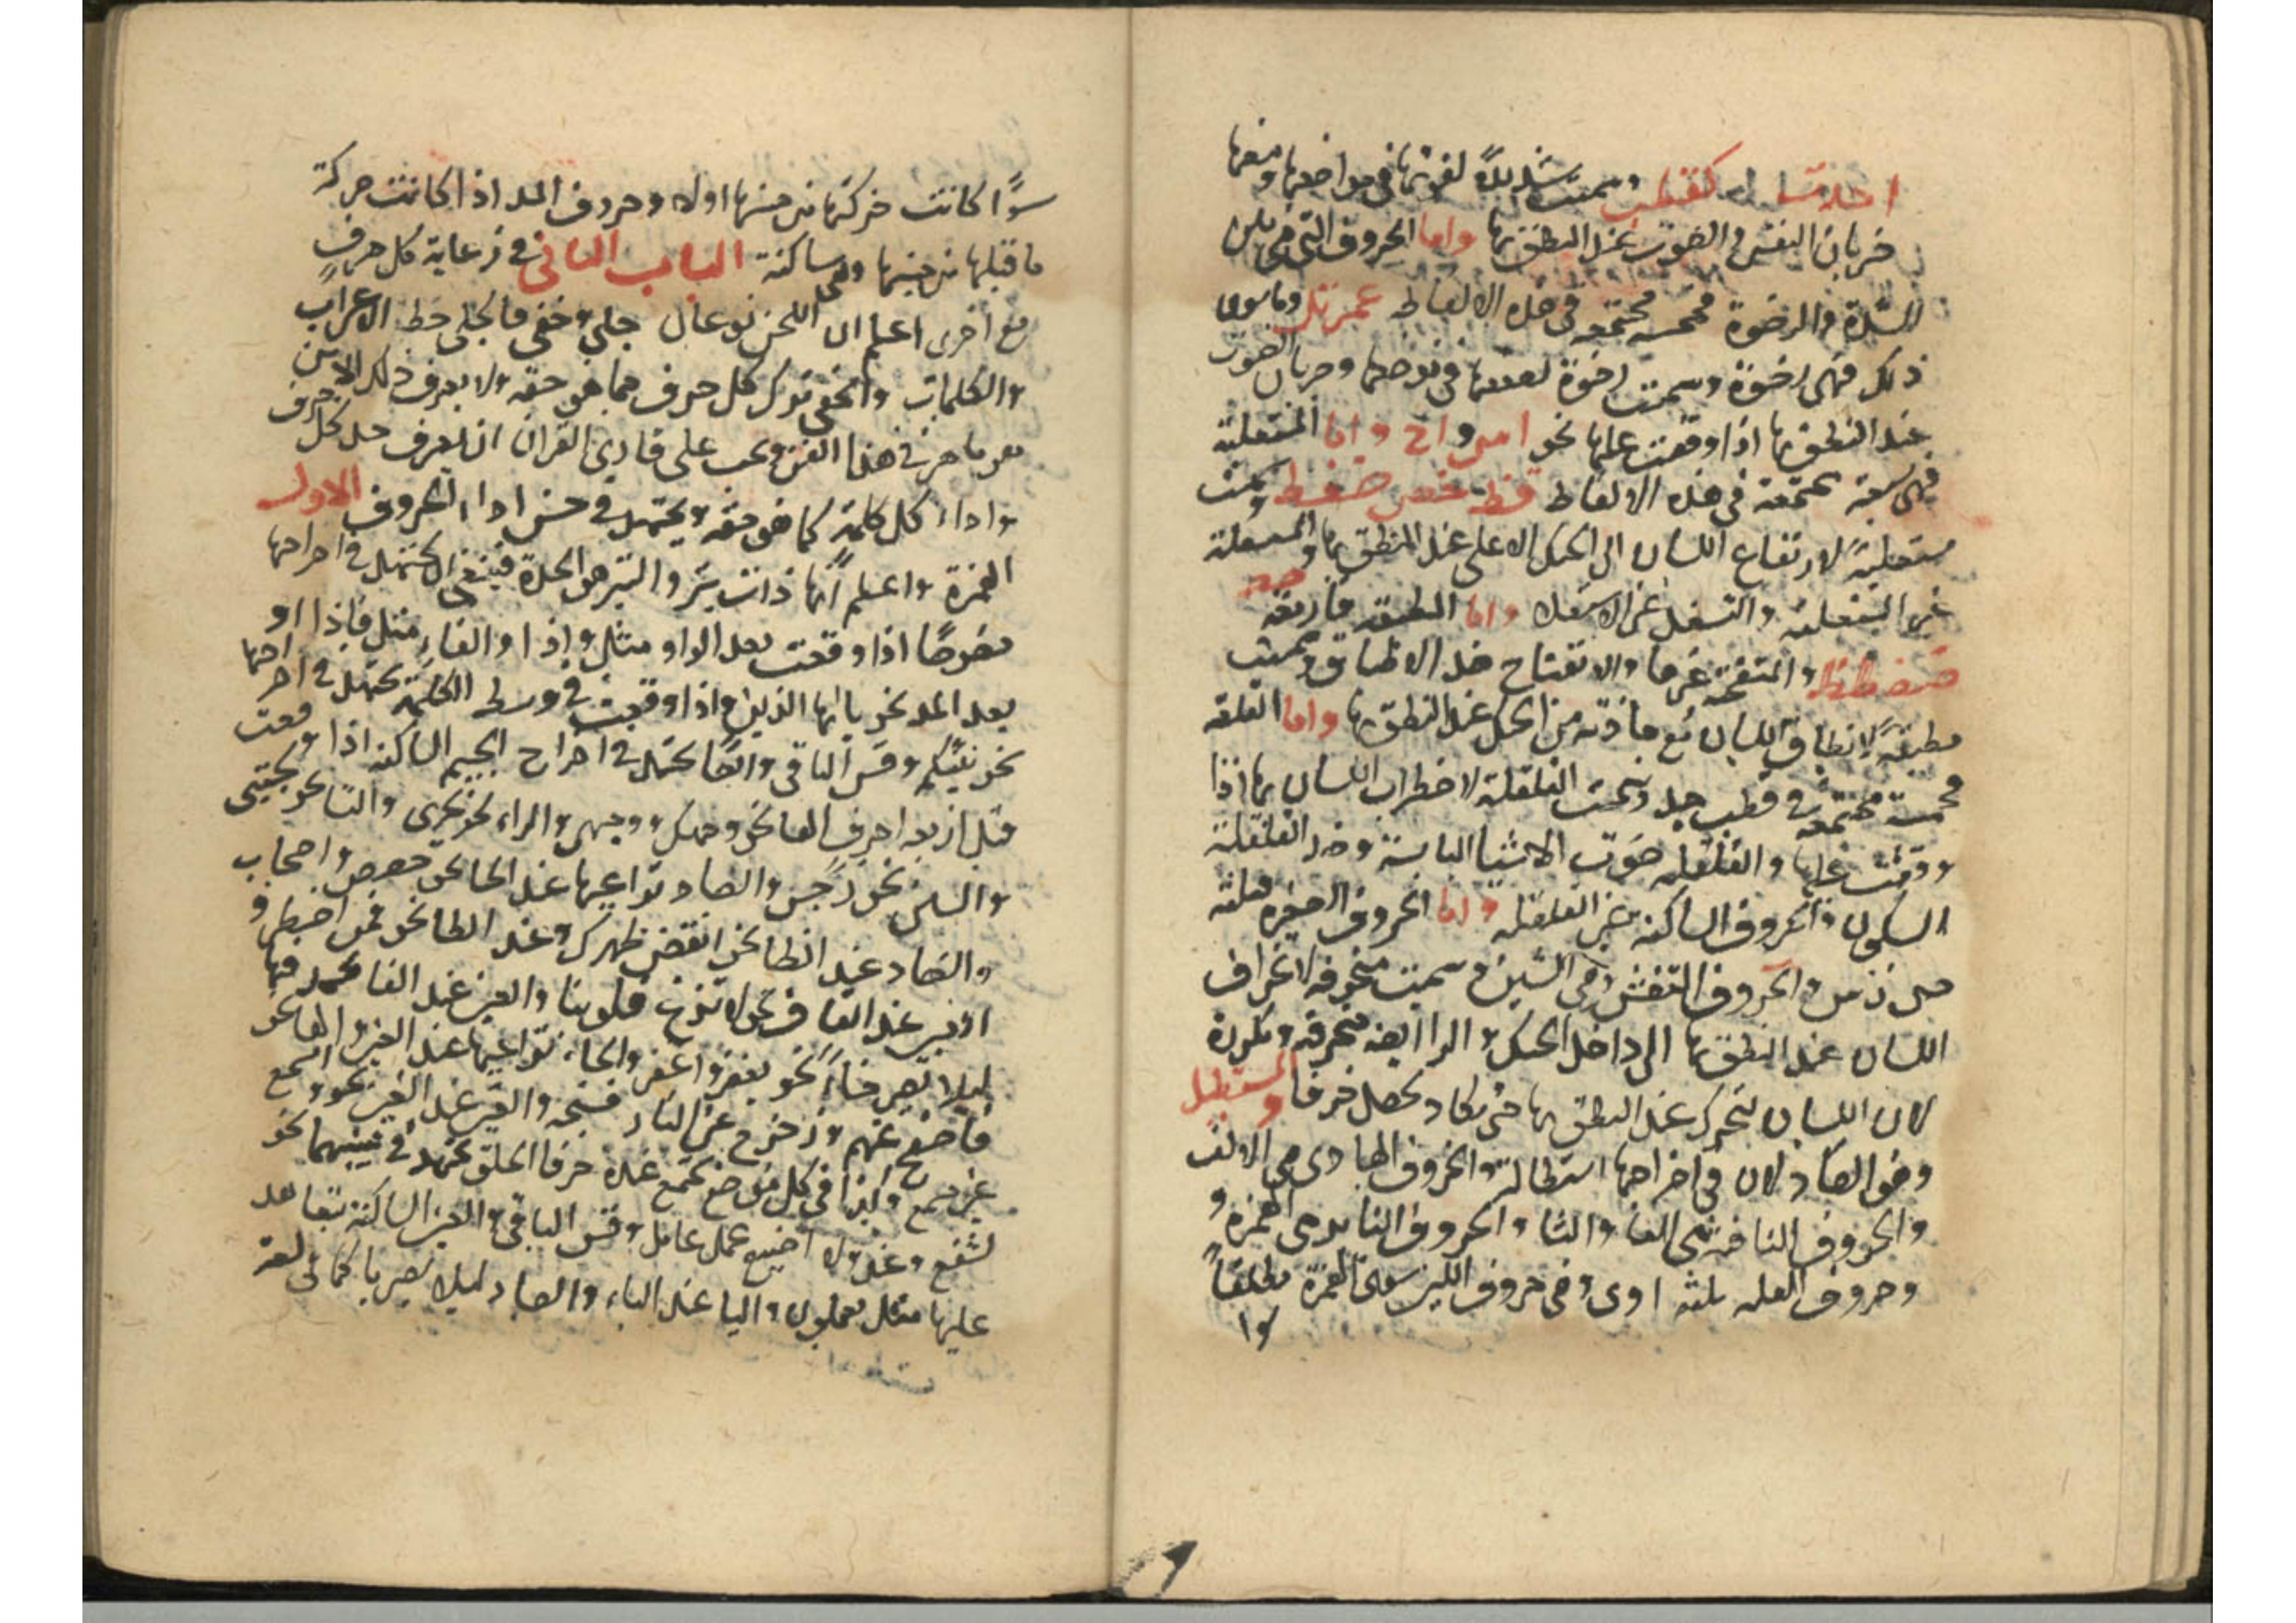 احدت كقطب وسميت شديدة لقوتها فى مواضعها ومنعها
جريان النفس والصوت عند النطق بها واما الحروف التى هى بين
الشدة والرخوة فخمسة مجتمعه فى هذه الالفاظ عمرنل وما سوى
ذلك فهى رخوة وسميت رخوة لضعفها فى موضعها وجريان الصوت
عند النطق بها اذا وقفت عليها نحو امس واخ واما المستعلية
فهى سبعة مجتمعة فى هذه الالفاظ قظ خص ضغط سميت
مستعلية لارتفاع اللسان الى الحنك الاعلى عند النطق بها والمستفلة
غير المستعلية والتسفل عن الاستعلا واما المطبقة فاربعة
صضطظ والمنفتحة غيرها والانفتاح ضد الاطباق وسميت
مطبقة لانطباق اللسان مع ما فوقه من الحنك عند النطق بها واما القلقله
فخمسة مجتمعه فى قطب جد وسميت القلقلة لاضطراب اللسان بها اذا
وقفت عليها والقلقله صوت الاشيا اليابسة وضد القلقلة
السكون والحروف الساكنة غير القلقله واما الحروف الصفيره ثلثة
ص ز س والحروف التفشى وهى الشين وسميت منحرفه لانحراف
اللسان عند النطق بها الى داخل الحنك والرا ايضا منحرفة ومكررة
لان اللسان يتحرك عند النطق بها حتى يكاد يحصل حرفا والمستطيل
وهو الضاد لان فى اخراجها استطالة والحروف الهاوى هى الالف
والحروف النافخة هى الفا والثا والحروف النابر هى الهمزة و
وحروف العلة ثلثه اوى وهى حروف اللين سوى الهمزة مطلقاً
سوا
سوًا كانت حركتها من جنسها اولا وحروف المد اذا كانت حركة
ما قبلها من جنسها وهى ساكنة الباب الثانى فى رعاية كل حرف
مع اخرى اعلم ان اللحن نوعان جلى وخفى فالجلى خطا الاعراب
والكلمات والخفى ترك كل حرف مما هو حقه ولا يعرف ذلك الا من
هو ماهر فى هذا الفن ويجب على قارئ القران ان يعرف حد كل حرف
واداء كل كلمة كما هو حقه ويجتهد فى حسن اداء الحروف الاول
الهمزة واعلم انها ذات نبر والنبر هو الحدة فينبغى ان يجتهد فى اخراجها
خصوصًا اذا وقعت بعد الواو مثل واذا والفاء مثل فاذا او
بعد المد نحو يا ايها الذين واذا وقعت فى وسط الكلمة يجتهد فى اخراجها
نحو نبئكم وقس الباقى وايضا يجتهد فى اخراج الجيم الساكنة اذا وقعت
قبل اربعه احرف الها نحو وجهك ووجهى والراء نحو تجرى والتا نحو يجتبى
والسين نحو رجس والصاد تراعيها عند الحا نحو حصحص واصحاب
والضاد عند الظا نحو انقض ظهرك وعند الطا نحو فمن اضطر و
الغين عند القاف نحو لا تزغ قلوبنا والغين عند الفا يجهد فيها
ليلا يصير خاءً نحو يغفر واغفر والحاء تراعيها عند العين والها نحو
فاصفح عنهم وزحزح عن النار فسبحه والعين عند الغين نحو واسمع
غير مسمع وكذا فى كل موضع يجتمع عنده حرفا الحلق يجتهد فى تبيينهما نحو
نشفع وعند ولا اضيع عمل عامل وقس الباقى والعين الساكنة تتعاهد
عليها مثل يعملون واليا عند الياء والصاد ليلا يصير يا كما فى لغة